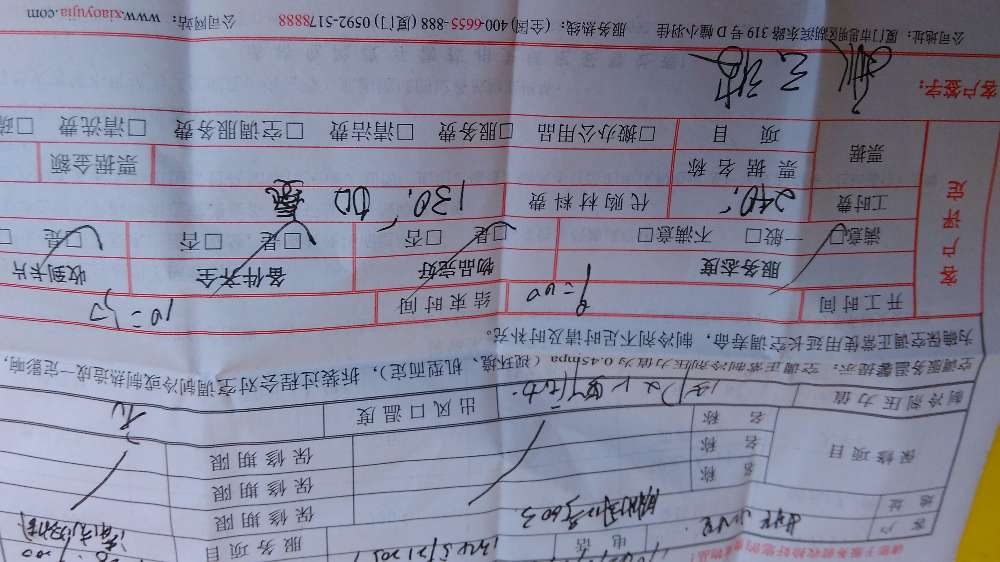 请您于服务前收拾好您的
客户 电话 服务项目
地址 603
保修项目 名称 保修期限
名称 保修期限
名称 保修期限
制冷剂压力值 出风口温度
空调服务温馨提示:空调正常制冷剂压力值为0.45mpa(视环境、机型而定),拆装过程会对空调制冷或制热造成一定影响,
为确保空调正常使用延长空调寿命,制冷剂不足时请及时补充。
客户评定
开工时间 9=00 结束时间 10=
服务态度 物品完好 备件齐全 收到卡片
满意□ 一般□ 不满意□ □是 □否 □是 □否 □是 □
工时费 240 代购材料费 130.
票据 票据名称 票据金额
项目 □搬办公用品 □服务费 □清洁费 □空调服务费 □清洗费 □疏
客户签字:
公司地址:厦门市思明区湖滨东路319号D幢小羽佳 服务热线:(全国)400-6655-888 (厦门)0592-5178888 公司网站:www.xiaoyujia.com